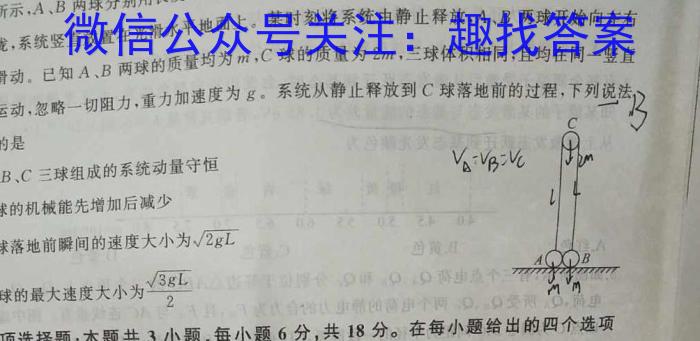 所示,A、B 两球分别用长
微信公众号关注：趣找答案
态,系统竖 放置在光滑水平地面上。某时刻将系统由静止释放,A、B 两球开始向左右
滑动。已知 A、B 两球的质量均为 m,C 球的质量为 2m,三球体积相同,且均在同一竖直
运动,忽略一切阻力,重力加速度为 g。系统从静止释放到 C 球落地前的过程,下列说法
的是
B、C 三球组成的系统动量守恒
球的机械能先增加后减少
球落地前瞬间的速度大小为√2gL
球的最大速度大小为√3gL/2
项选择题:本题共 3 小题,每小题 6 分,共 18 分。在每小题给出的四个选项
B
V_A=V_B=V_C
C
2m
L L
A B
m m